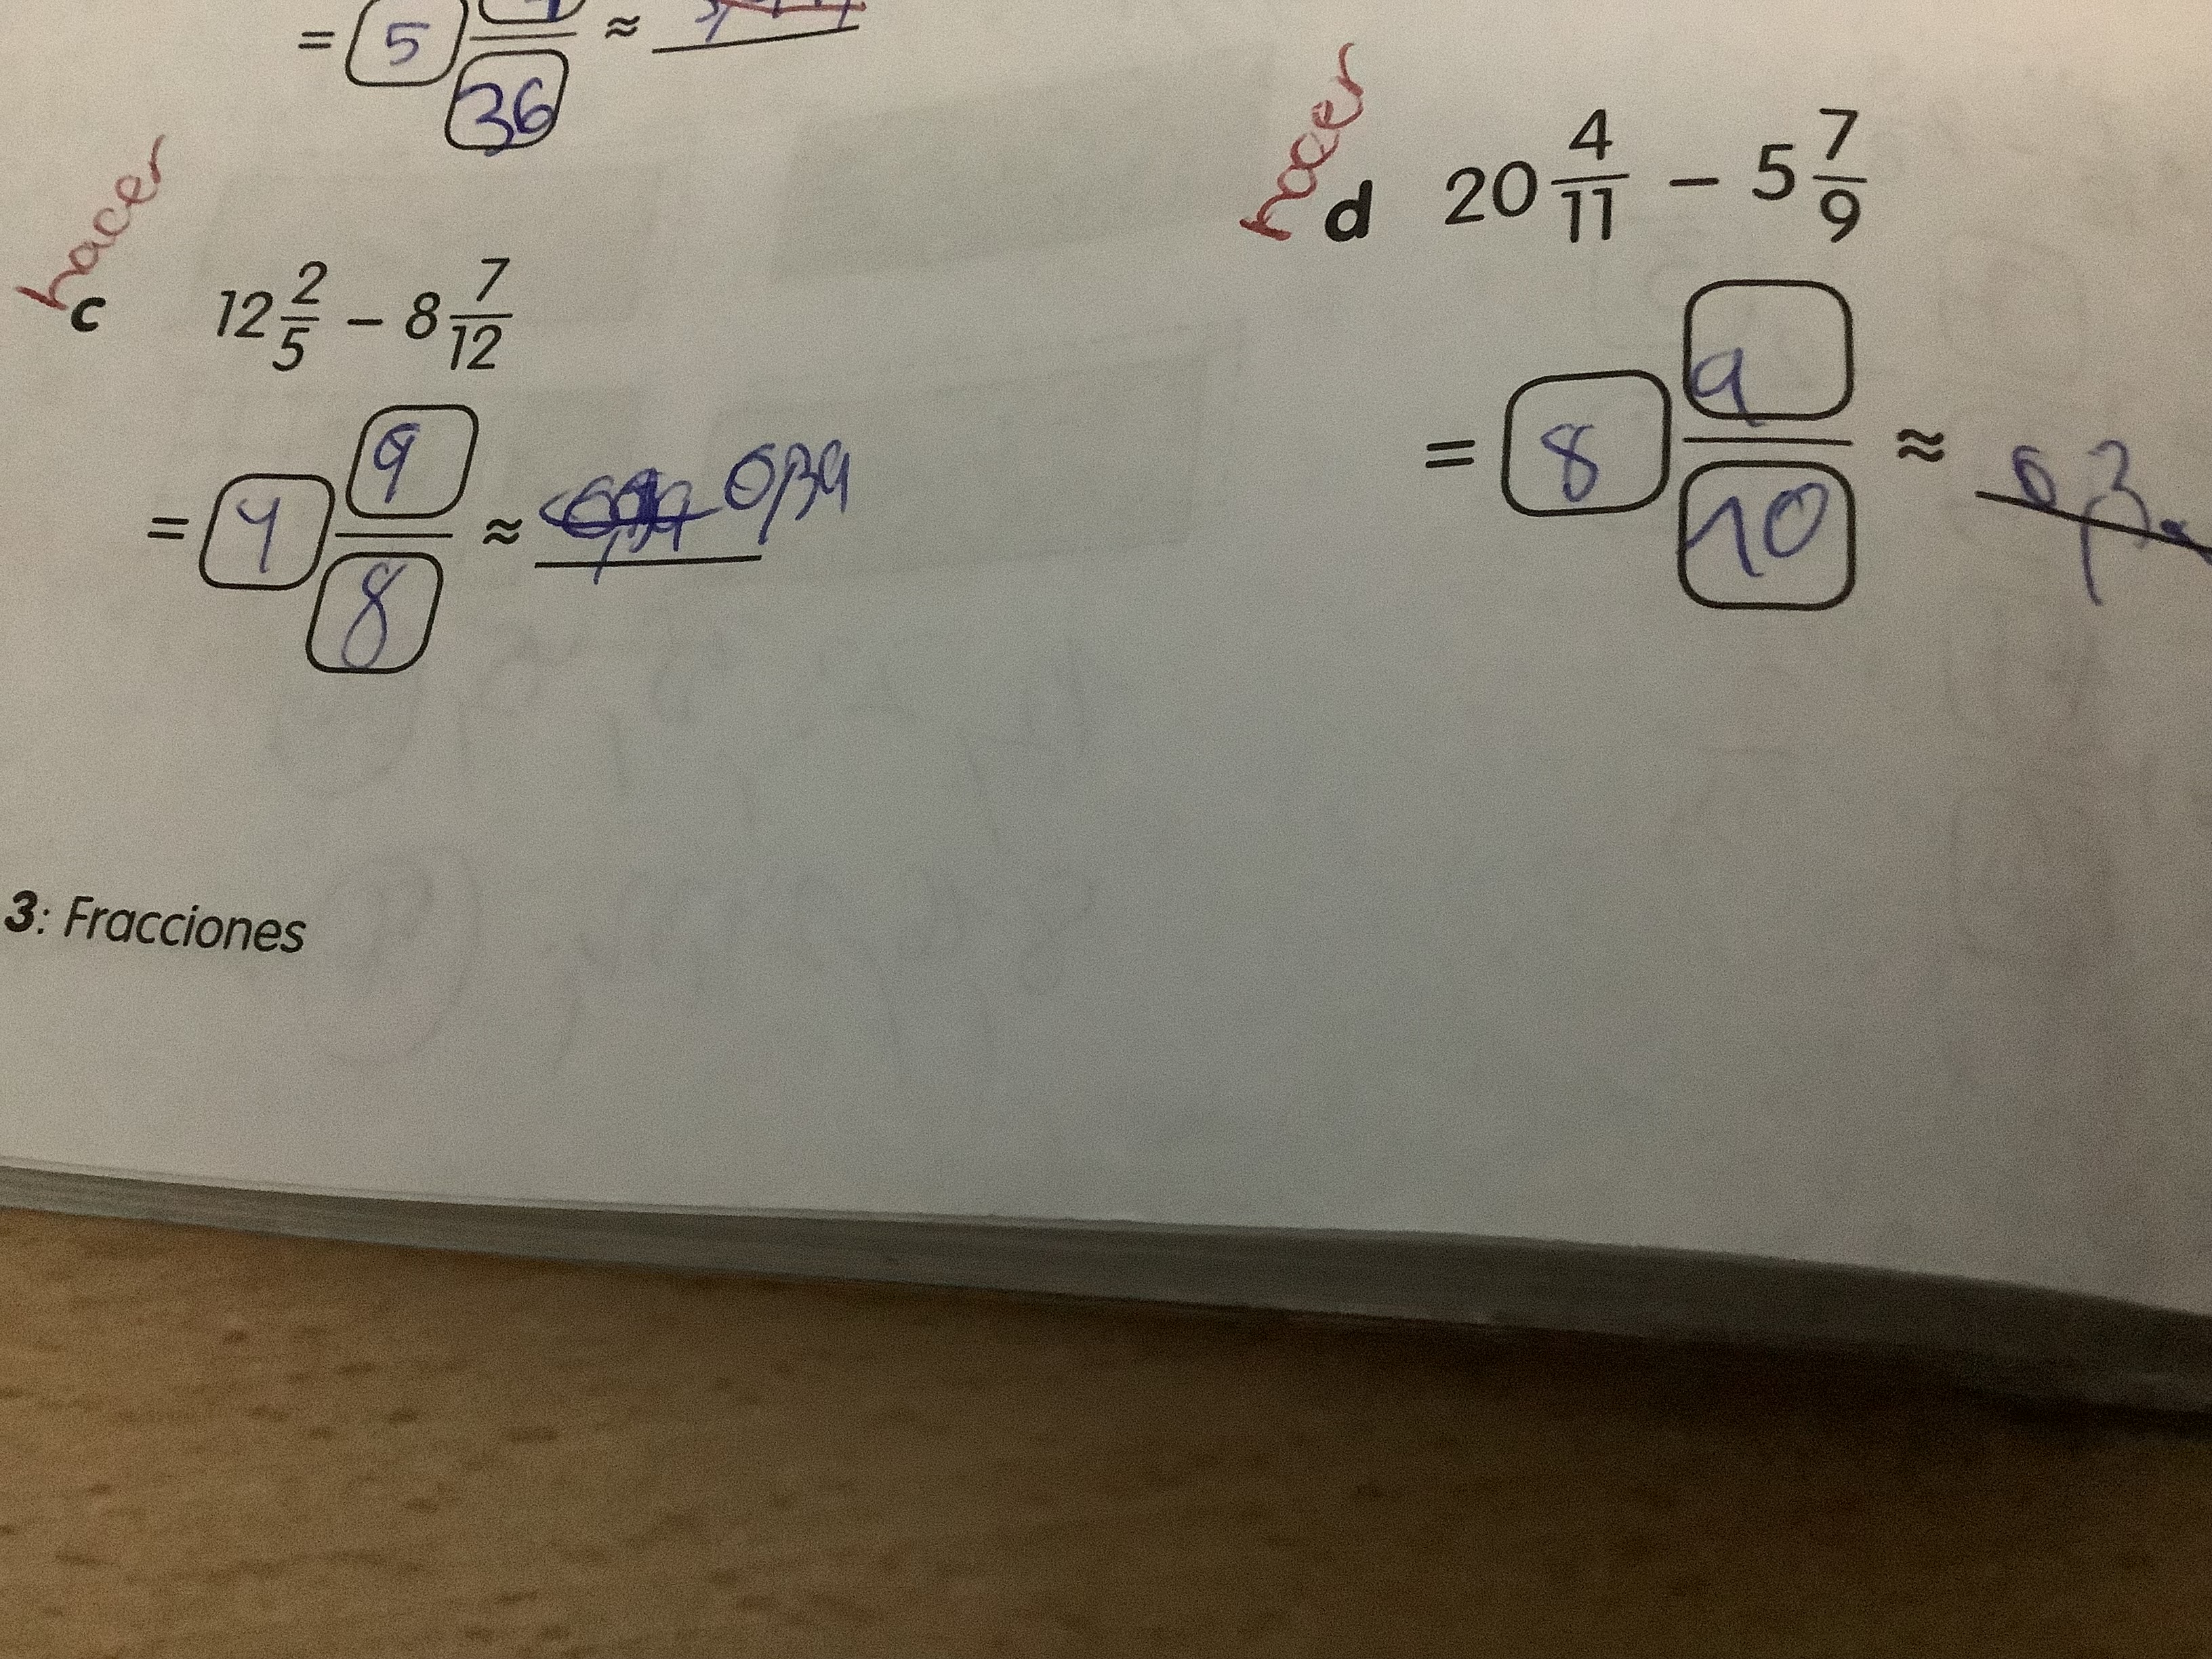 = 5 36 ≈
hacer
c 12 2/5 − 8 7/12
= 4 9/8 ≈ 0,39
hacer
d 20 4/11 − 5 7/9
= 8 9/10 ≈
3: Fracciones